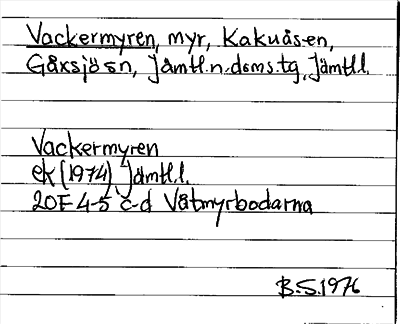 Vackermyren, myr, Kakuåsen,
Gåxsjö sn, Jämtl.n.doms.tg, Jämtl.l.
Vackermyren
ek (1974) Jämtl.l.
20F 4-5 c-d Våtmyrbodarna
B.S. 1976